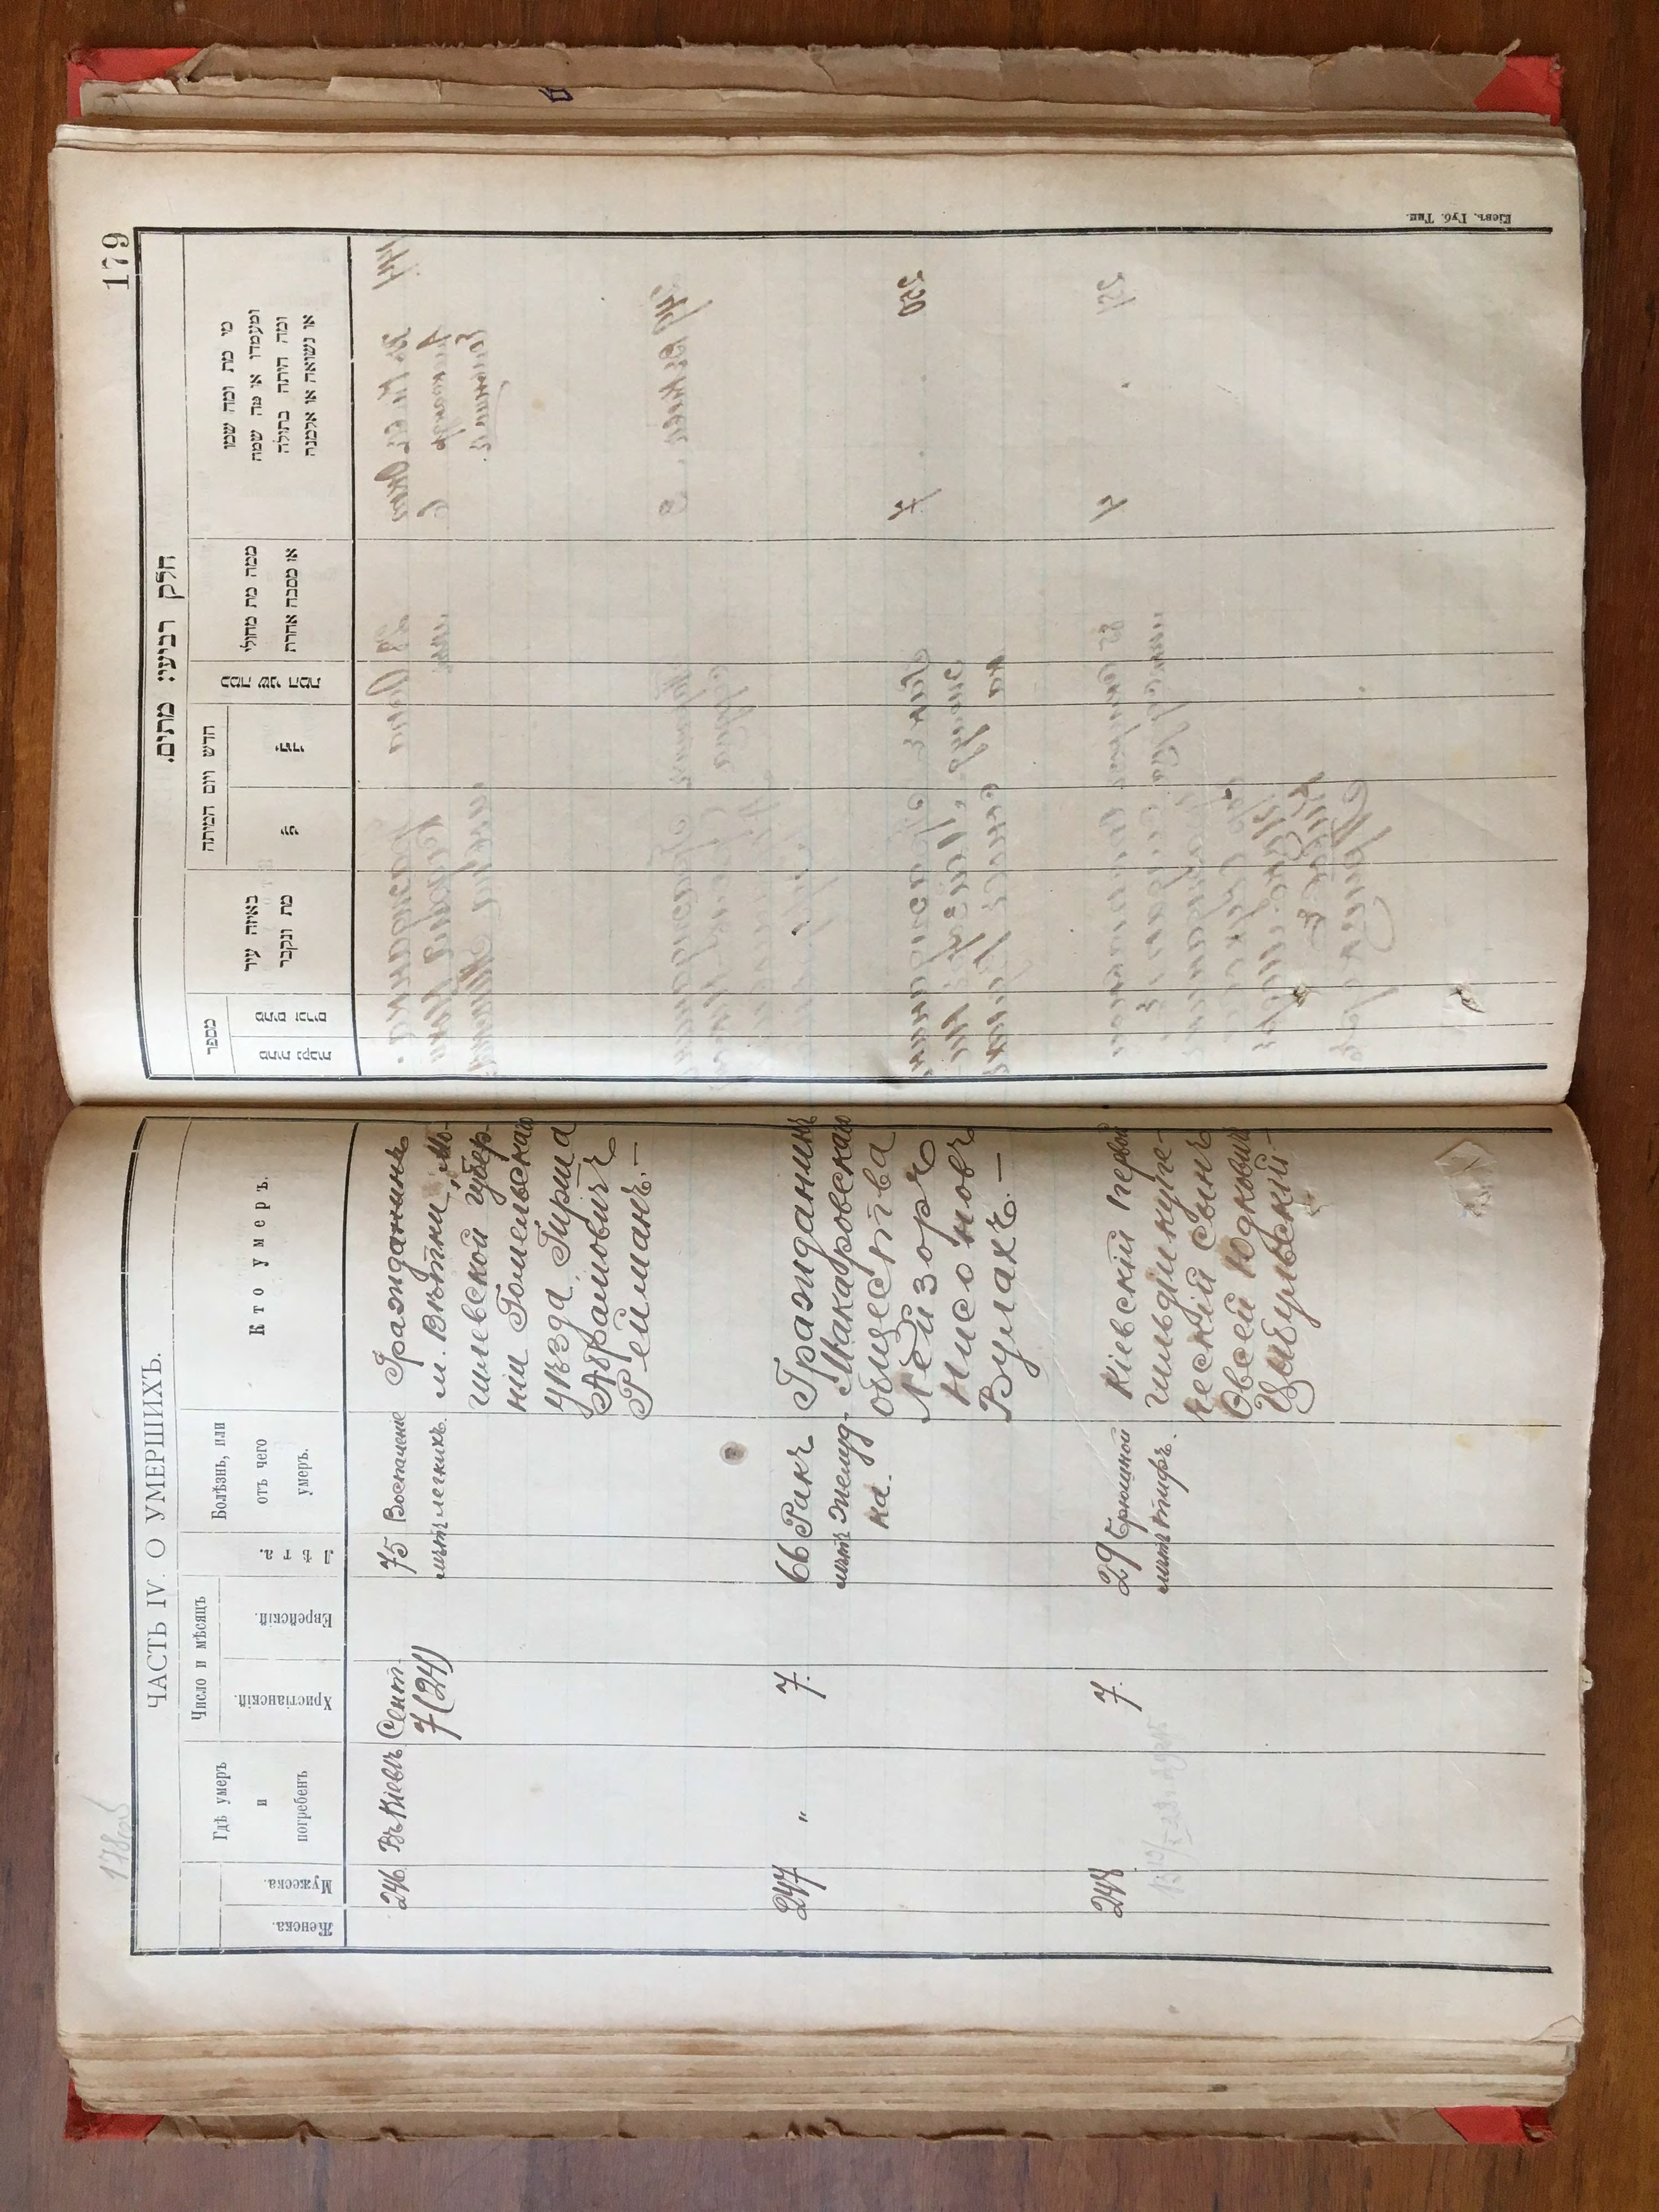 178об
ЧАСТЬ IV. О УМЕРШИХЪ.
Женска.
Мужеска.
Гдѣ умеръ
и
погребенъ
Число и мѣсяцъ
Христіанскій.
Еврейскій.
Лѣта.
Болѣзнь, или
отъ чего
умеръ.
Кто умеръ.
246 Въ Кіевѣ Сент. 7(24) 75 лѣтъ Воспаленіе легкихъ.
Гражданинъ
м. Вѣтки, Мо-
гилевской губер
ніи Гомельскаго
уѣзда Гирша
Абрамовичъ
Рейманъ.—
247 " 7. 66 лѣтъ Ракъ желуд-
ка.
Гражданинъ
Макаровскаго
общества
Лейзоръ
Нисоновъ
Вулахъ.—
248 7. 29 лѣтъ Брюшной
тифъ.
Кіевскій первой
гильдіи купе-
ческій сынъ
Овсей Юдковичъ
Цибульскій.—
179
חלק רביעי: מתים.
מספר
מתים נקבות
מתים זכרים
באיזה עיר
מת ונקבר
חדש ויום המיתה
כמה שני המת
ממה מת מחולי
או מסבה אחרת
מי מת ומה שמו
ומעמדו או מה שמה
ומה היתה בתולה
או נשואה או אלמנה
Кіевъ, Губ. Тип.